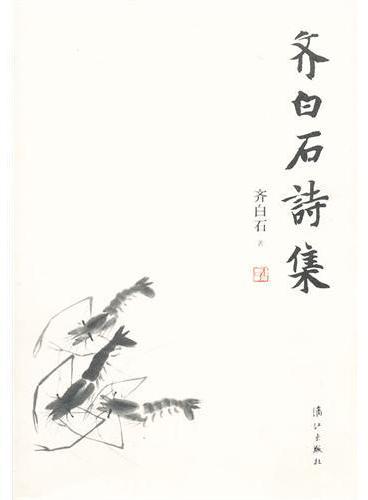 齐白石詩集
齐白石 著
漓江出版社